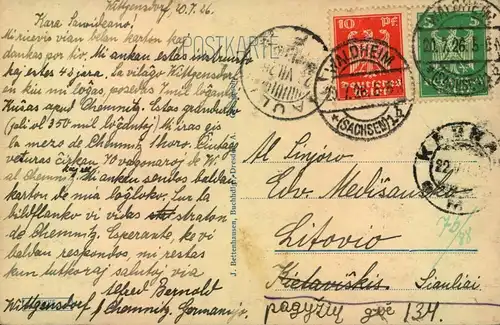 Wittgensdorf, 20.7.26.
Kara Samideano!
Mi ricevis vian bilan karton kaj
dankas por ĝi. Mi ankaŭ estas instruisto
kaj estas 43 jara. La vilaĝo Wittgensdorf
en kiu mi loĝas, posedas 7 mil loĝantoj.
Kuŝas apud Chemnitz. Estas grandurbo
(pli ol 350 mil loĝantoj). Mi iras ĝis
la mezo de Chemnitz 1 horo.
veturas ĉirkaŭ 70 vagonaroj de W. al
Chemnitz. kaj re Mi ankaŭ sendos baldaŭ
karton de mia loĝloko. Sur la
bildflanko vi vidas straton
de Chemnitz. Esperante, ke vi
baldaŭ respondos mi restas
kun tutkoraj salutoj via
Alfred Bernoldt
Wittgensdorf / Chemnitz, Germanujo.
POSTKARTE
J. Bettenhausen, Buchhdlg., Dresden-A.
10 PF
Deutsches Reich
5 PF
WALDHEIM
20.7.26. 5-6
(SACHSEN)
ŠIAULIAI
KAUNAS
22
Al Sinjoro
Edv. Medišauskas
Litovio
Kietaviškis Šiauliai
pagyžių gvė 134.